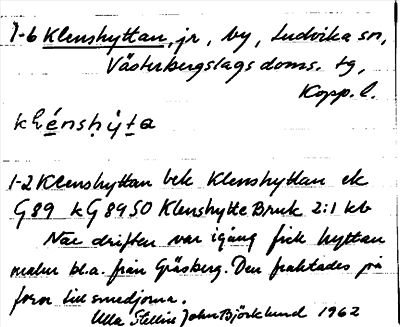 1-6 Klenshyttan, jr, by, Ludvika sn,
Västerbergslags doms. tg,
Kopp. l.
klénshỳta
1-2 Klenshyttan bek Klenshyttan ek
G 89 kG 8950 Klenshytte Bruk 2:1 kb
När driften var igång fick hyttan
malm bl.a. från Gräsberg. Den fraktades på
foror till smedjorna.
Ulla Stellin John Björklund 1962